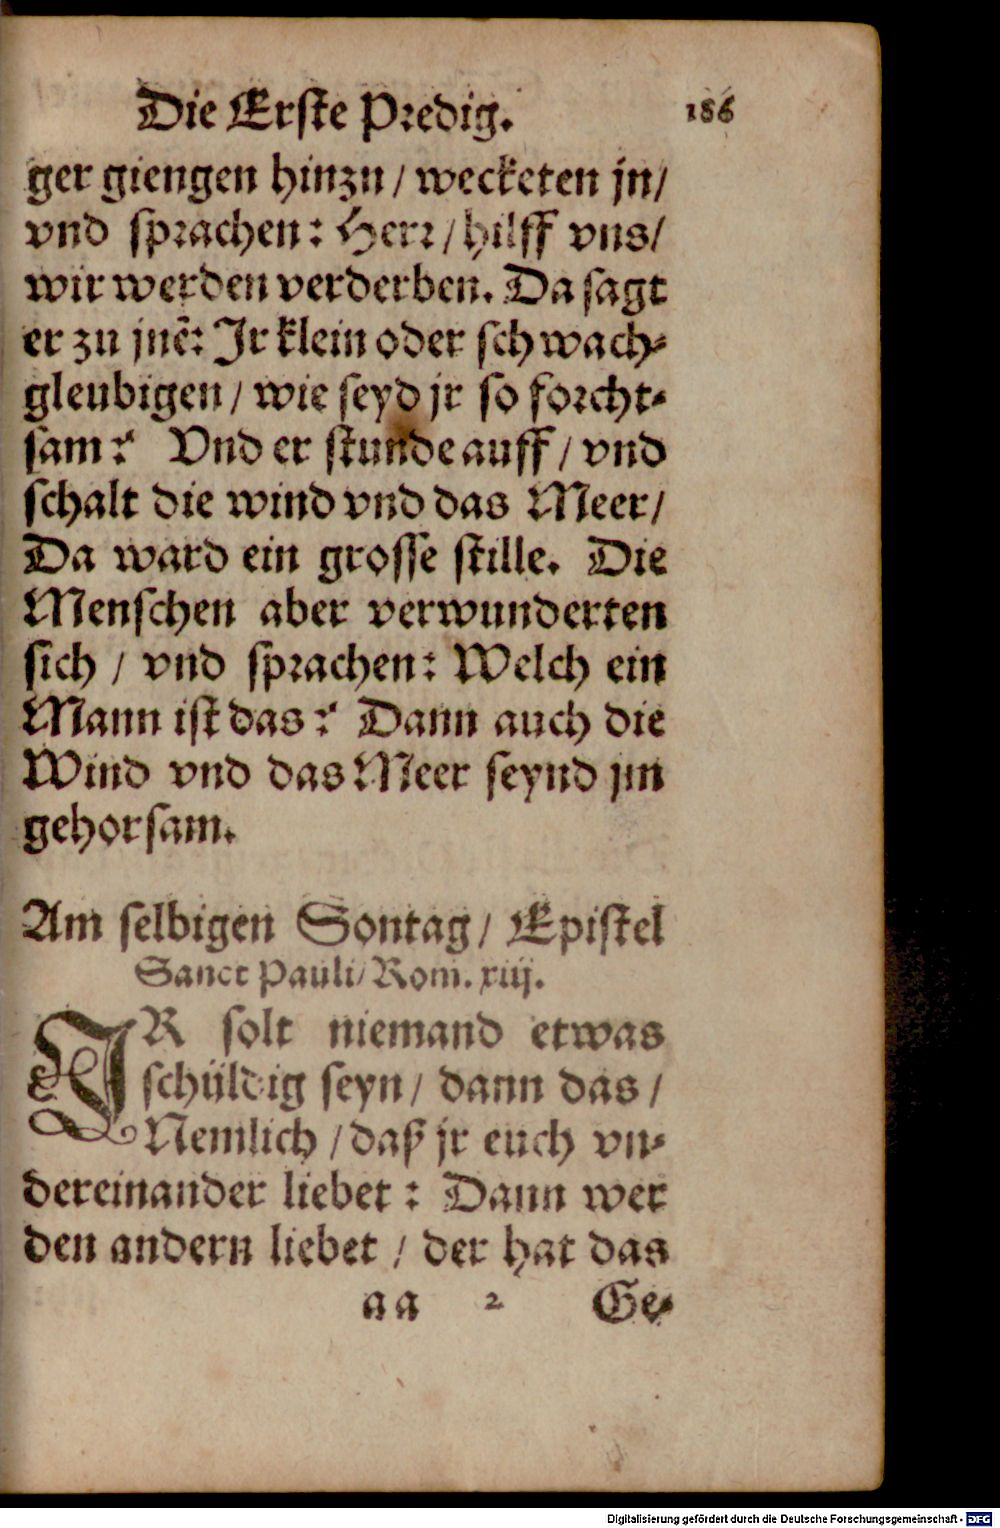 Die Erste Predig. 186
ger giengen hinzu / wecketen jn/
vnd sprachen: Herr / hilff vns/
wir werden verderben. Da sagt
er zu jnẽ: Jr klein oder schwach-
gleubigen / wie seyd jr so forcht-
sam? Vnd er stunde auff / vnd
schalt die wind vnd das Meer/
Da ward ein grosse stille. Die
Menschen aber verwunderten
sich / vnd sprachen: Welch ein
Mann ist das? Dann auch die
Wind vnd das Meer seynd jm
gehorsam.
Am selbigen Sontag / Epistel
Sanct Pauli/ Rom. xiij.
JR solt niemand etwas
schüldig seyn / dann das /
Nemlich / daß jr euch vn-
dereinander liebet: Dann wer
den andern liebet / der hat das
aa 2 Ge-
Digitalisierung gefördert durch die Deutsche Forschungsgemeinschaft - DFG